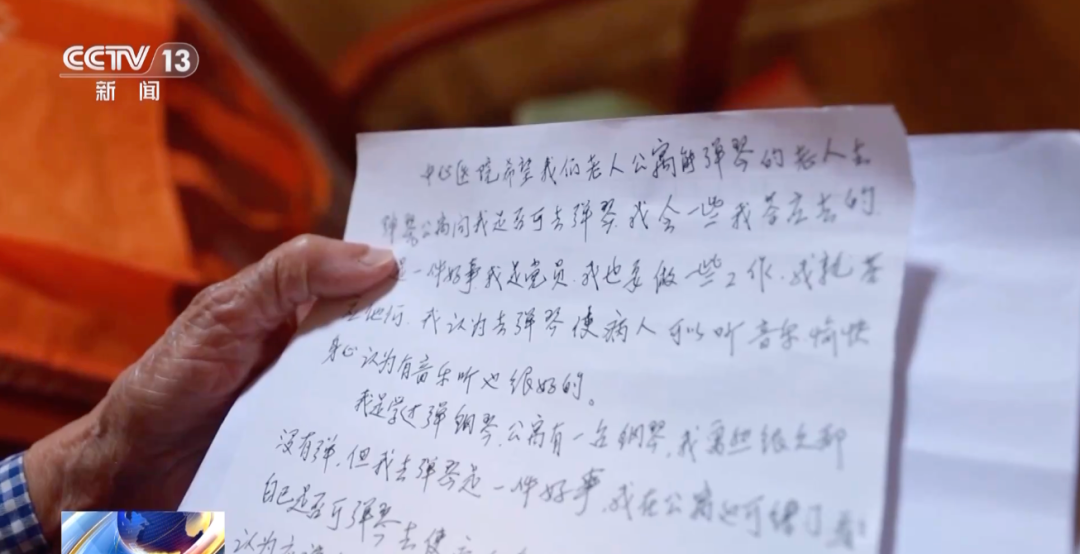 CCTV 13
新闻
中心医院希望我们老人公寓能弹琴的老人去
弹琴公寓问我是否可去弹琴.我会一些我答应去的.
是一件好事我是党员.我也要做一些工作.我就答
应他们.我认为去弹琴使病人可以听音乐愉快
身心认为有音乐听也很好的。
我是学过弹钢琴.公寓有一台钢琴.我离想很久都
没有弹.但我去弹琴是一件好事.我在公寓也可练了
自己是否可弹琴去使
认为